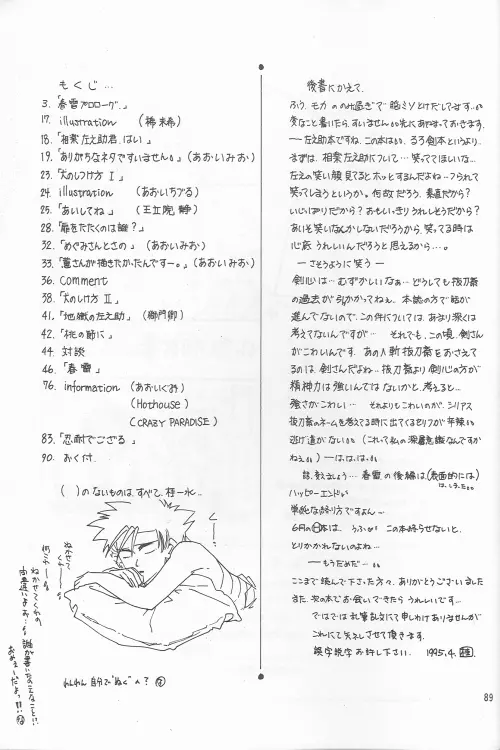 もくじ…
3.「春雷プロローグ.」
17. illustration (楠 未希)
18.「相楽左之助君、はい」
19.「ありがちなネタですいません。」(あおいみお)
23.「犬のしつけ方 Ⅰ」
24. illustration (あおいちづる)
25.「あいしてね」(王立院 静)
28.「扉をたたくのは誰?」
32.「めぐみさんとさの」(あおいみお)
33.「蒼さんが描きたかったんですー。」(あおいみお)
36. Comment
38.「犬のしつけ方 Ⅱ」
41.「地獄の左之助」(獅門卿)
42.「桃の節に」
44. 対談
46.「春雷」
76. information (あおいくるみ)
(Hothouse)
(CRAZY PARADISE)
83.「忍耐でござる」
90. おくづけ
( )のないものは、すべて、柱一水..
後書にかえて.
ふう、モカののみ過ぎで脳ミソとけだしてます..
変なこと書いたら、すいません。先にあやまっておきます.
— 左之助本ですね、この本は。るろ剣本というより.
まずは、相楽左之助について… 笑っててほしいな…
左之の笑い顔見てるとホッとするんだよね…フられて
笑ってまうというか。何故だろう、素直だから?
いじっぱりだから? おもいっきりうれしそうだから?
あいそ笑いなんかしないだろうから、笑ってる時は
心底うれしいんだろうと思えるから…。
— さそうように笑う —
剣心は… むずかしいなぁ… どうしても抜刀斎
の過去が引っかかってねぇ、本誌の方で話が
進んでないので、この件については、あまり深くは
考えてないんですが… それでも、この頃、剣さん
がこわいんです. あの人斬抜刀斎をおさえて
るのは、剣さんだよね.. 抜刀斎より剣心の方が
精神力は強いんではないかと、考えると…
強さがこわい… それよりもこわいのが、シリアス
抜刀斎のネームを考えてる時に出てくるセリフが辛辣。
逃げ道がない。。 (これって私の深層意識なんですか
ねぇ。。) — は、は、は..
話、変えましょう… 春雷の後編は、(表面的には)
ハッピーエンド
単純な終り方ですよん~
6月の本は、うふふ この本終らせないと、
とりかかれないのよね…
— もうだめだ…
ここまで読んで下さった方々、ありがとうございました
また、次の本でお会いできたらうれしいです…
ではでは乱筆乱文にて申しわけありませんが
これにて失礼させて頂きます.
誤字脱字お許し下さい. 1995.4.
ねかせて
くー
何これー
ねかせてくれの
間違いよぉ…
誰が書いたのこんなこと…
おめぇだよっ!!!
わんわん 自分で"ぬぐ"ヘ?
89